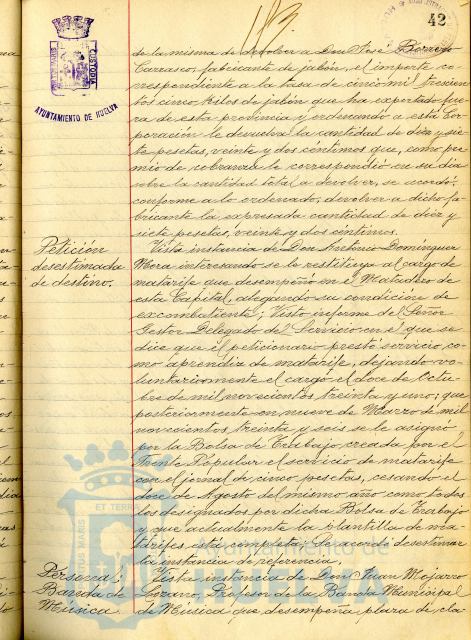 113.
42
CUSTODIA
AYUNTAMIENTO DE HUELVA
de la misma de devolver a Don José Borrego
Carrasco, fabricante de jabón, el importe co-
rrespondiente a la tasa de cinco mil trescien
tos cinco kilos de jabón que ha exportado fue
ra de esta provincia y ordenando a esta Cor
poración le devuelva la cantidad de diez y sie
te pesetas, veinte y dos céntimos que, como pre
mio de cobranza le correspondió en su dia
sobre la cantidad total a devolver, se acordó,
conforme a lo ordenado, devolver a dicho fa-
bricante la expresada cantidad de diez y
siete pesetas, veinte y dos céntimos.
Petición
desestimada
de destino.
Vista instancia de Don Antonio Domínguez
Mera interesando se le restituya al cargo de
matarife que desempeñó en el Matadero de
esta Capital, alegando su condición de
excombatiente; Visto informe del Señor
Gestor Delegado del Servicio en el que se
dice que el peticionario prestó servicio, co-
mo aprendiz de matarife, dejando vo-
luntariamente el cargo el doce de Octu-
bre de mil novecientos treinta y uno; que
posteriormente en nueve de Marzo de mil
novecientos treinta y seis se le asignó
por la Bolsa de Trabajo creada por el
Frente Popular el servicio de matarife
con el jornal de cinco pesetas, cesando el
doce de Agosto del mismo año como todos
los designados por dicha Bolsa de Trabajo
y que actualmente la plantilla de ma-
tarifes está completa, Se acordó desestimar
la instancia de referencia.
Personal
Banda de
Música
Vista instancia de Don Juan Mojarro
Lozano, Profesor de la Banda Municipal
de Música que desempeña plaza de cla
ET TERRAE
PORTUS MARIS
Ayuntamiento de